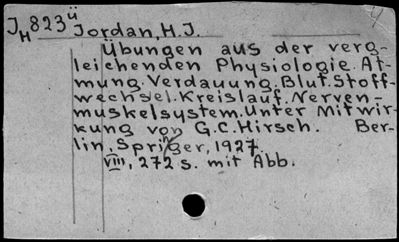 J_H 823ü
Jordan, H. J.
Übungen aus der verg-
leichenden Physiologie. At-
mung. Verdauung. Blut. Stoff-
wechsel. Kreislauf. Nerven-
muskelsystem. Unter Mitwir-
kung von G. C. Hirsch. Ber-
lin, Springer, 1927.
VIII, 272 s. mit Abb.